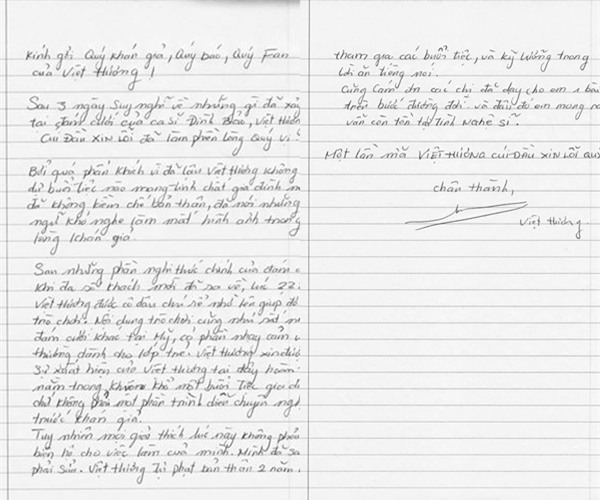 Kính gởi Quý khán giả, Quý báo, Quý Fan
của Việt Hương!
Sau 3 ngày suy nghĩ về những gì đã xảy
tại đám cưới của ca sĩ Đinh Bảo, Việt Hương
Cúi Đầu XIN LỖI đã làm phiền lòng Quý vị.
Bởi quá phấn khích vì đã lâu Việt Hương không
dự buổi tiệc nào mang tính chất gia đình
đã không kiềm chế bản thân, đã nói những
ngữ khó nghe làm mất hình ảnh trong
lòng khán giả.
Sau những phần nghi thức chính của đám
khi đa số khách mời đã ra về, lúc 22
Việt Hương được cô dâu chú rể nhờ lên giúp đỡ
trò chơi. Nội dung trò chơi cũng như rất
đám cưới khác tại Mỹ, có phần nhạy cảm
thường dành cho lớp trẻ. Việt Hương xin
Sự xuất hiện của Việt Hương tại đây hoàn
nằm trong khuôn khổ một buổi tiệc gia
chứ không phải một phần trình diễn chuyên
trước khán giả.
Tuy nhiên mọi giải thích lúc này không phải
biện hộ cho việc làm của mình. Mình đã
phải sửa. Việt Hương Tự phạt bản thân 2 năm
tham gia các buổi tiệc, và kỹ lưỡng trong
lời ăn tiếng nói.
Cũng Cám ơn các chị đã dạy cho em 1 bài
trên bước đường đời. và đâu đó em mong
vẫn còn tồn tại tình Nghệ sĩ.
Một lần nữa VIỆT HƯƠNG CÚI ĐẦU XIN LỖI QUÝ
Chân thành,
Việt Hương